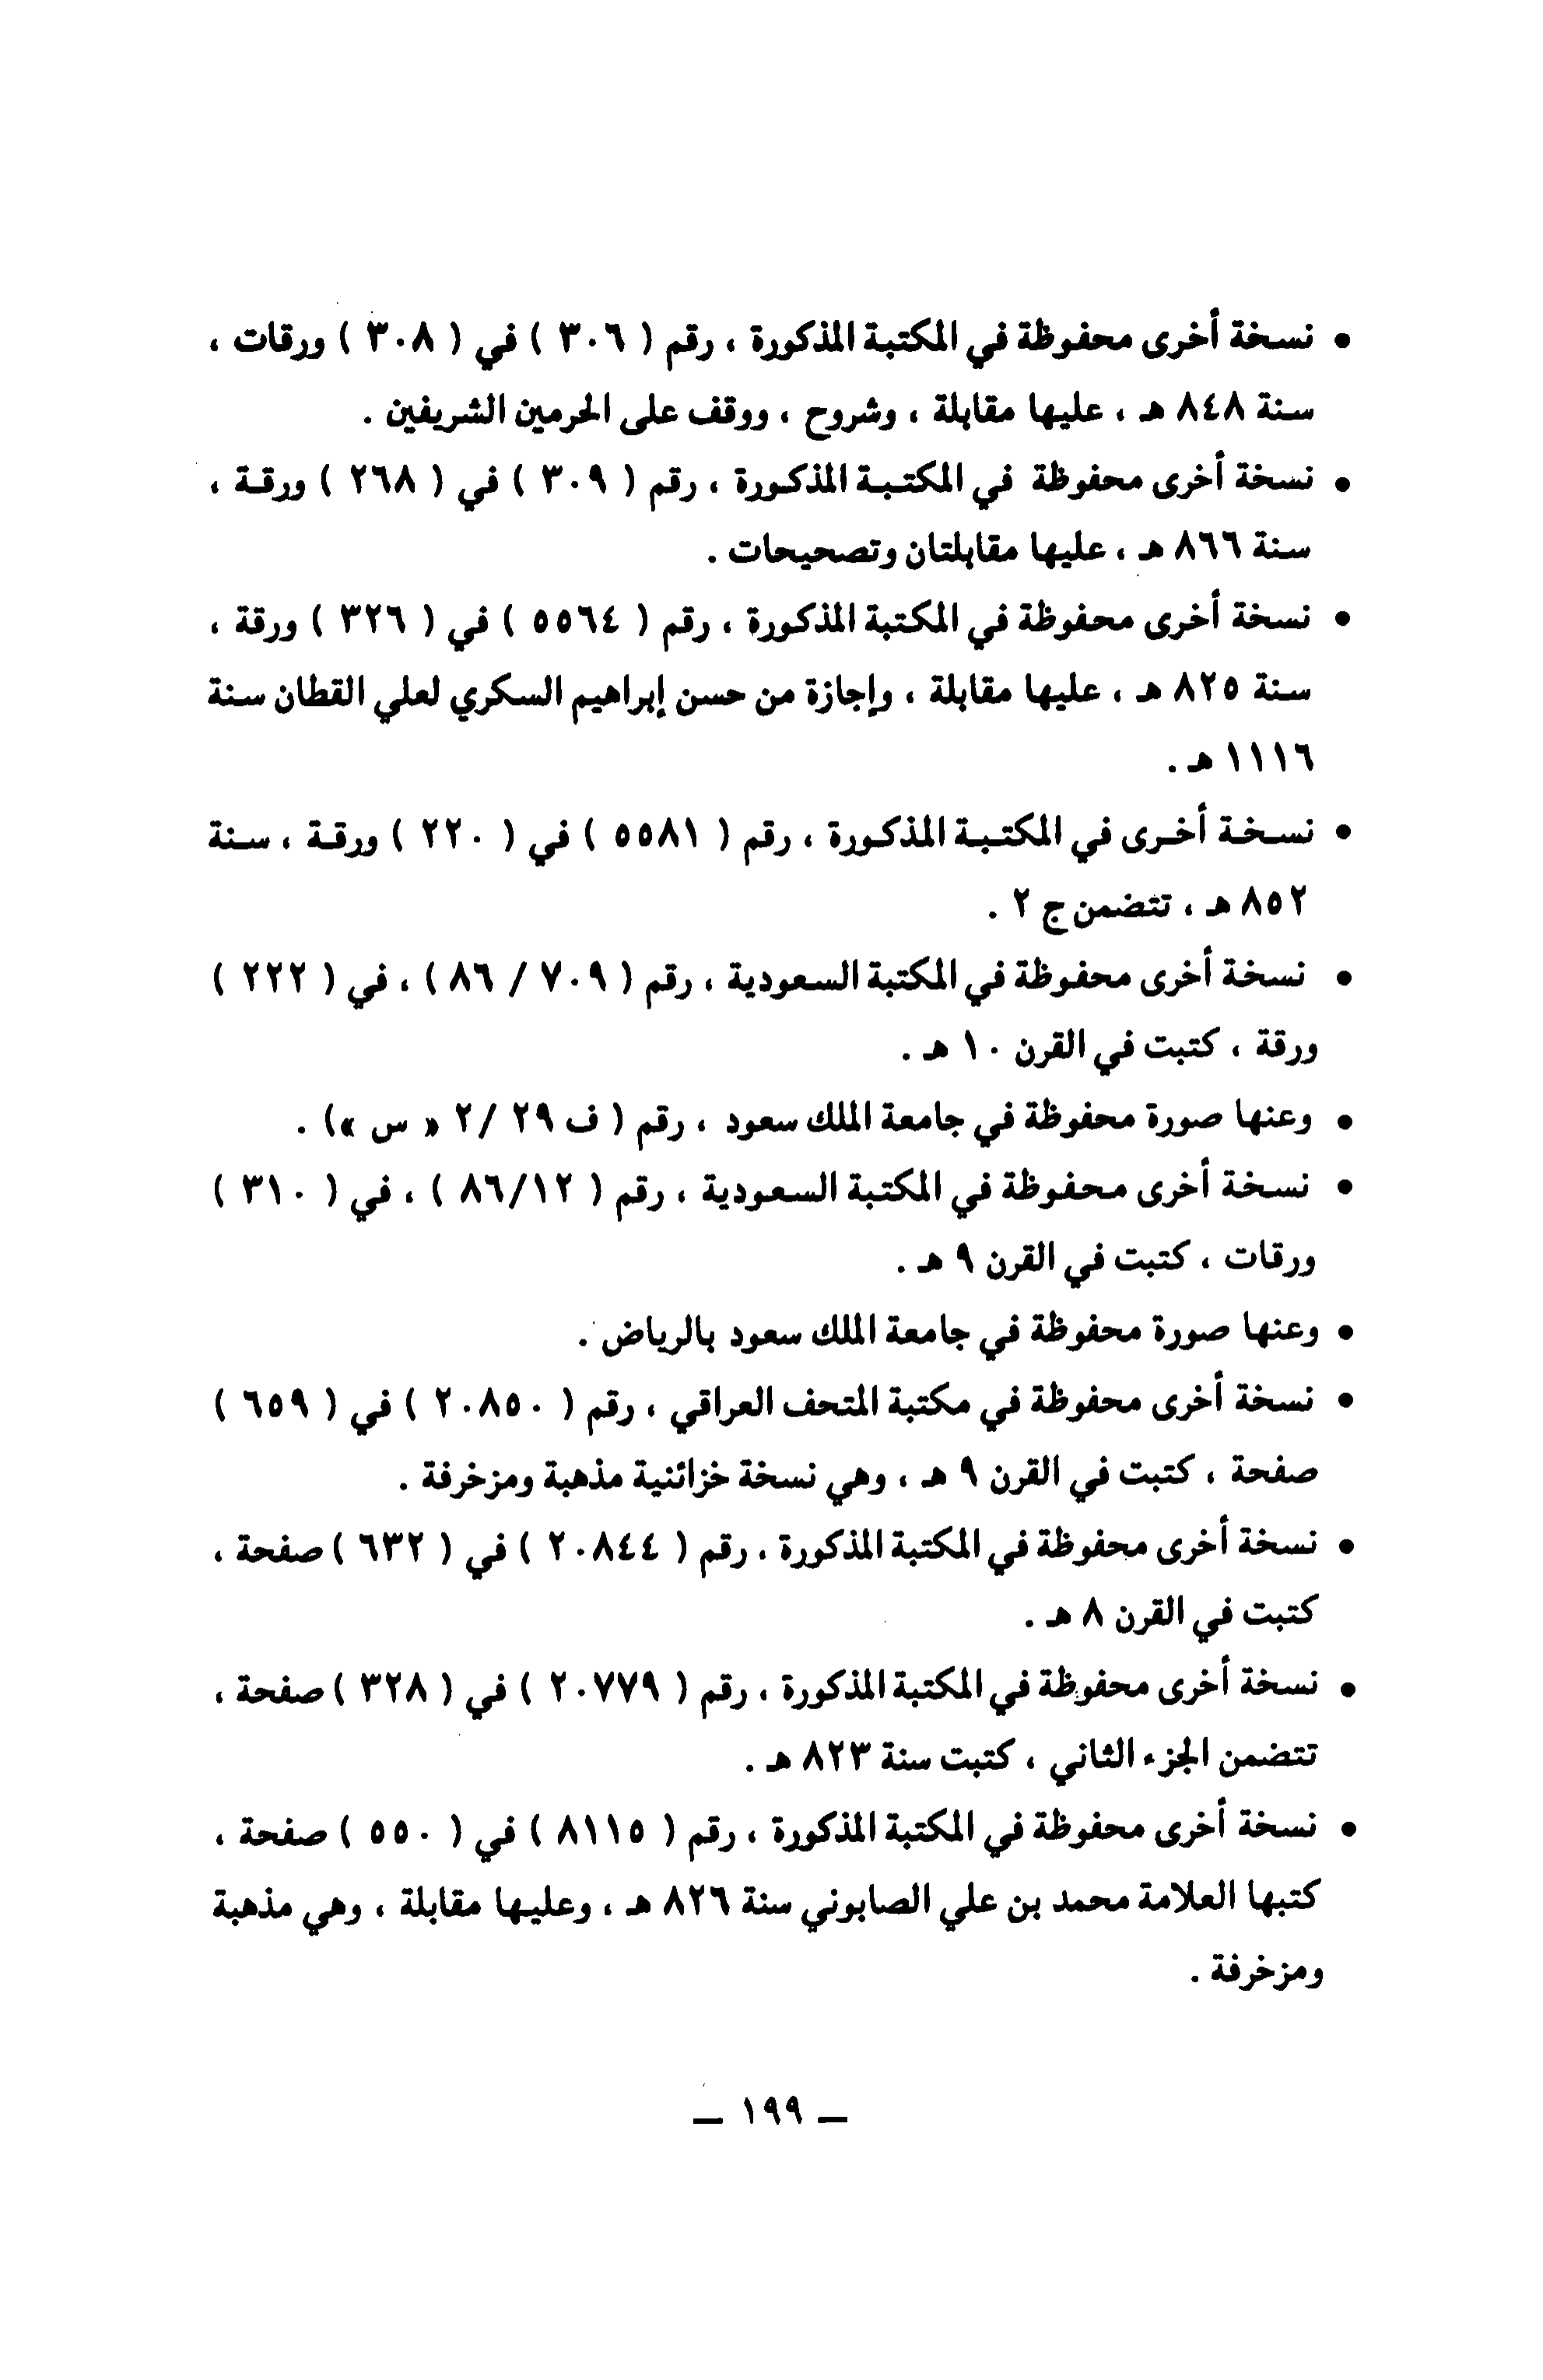 • نسخة أخرى محفوظة في المكتبة المذكورة ، رقم ( ٣٠٦ ) في ( ٣٠٨ ) ورقات ،
سنة ٨٤٨ هـ ، عليها مقابلة ، وشروح ، ووقف على الحرمين الشريفين .
• نسخة أخرى محفوظة في المكتبة المذكورة ، رقم ( ٣٠٩ ) في ( ٢٦٨ ) ورقة ،
سنة ٨٦٦ هـ ، عليها مقابلتان وتصحيحات .
• نسخة أخرى محفوظة في المكتبة المذكورة ، رقم ( ٥٥٦٤ ) في ( ٣٢٦ ) ورقة ،
سنة ٨٢٥ هـ ، عليها مقابلة ، وإجازة من حسن إبراهيم السكري لعلي القطان سنة
١١١٦ هـ .
• نسخة أخرى في المكتبة المذكورة ، رقم ( ٥٥٨١ ) في ( ٢٢٠ ) ورقة ، سنة
٨٥٢ هـ ، تتضمن ج ٢ .
• نسخة أخرى محفوظة في المكتبة السعودية ، رقم ( ٧٠٩ / ٨٦ ) ، في ( ٢٢٢ )
ورقة ، كتبت في القرن ١٠ هـ .
• وعنها صورة محفوظة في جامعة الملك سعود ، رقم ( ف ٢٩ /٢ « س ») .
• نسخة أخرى محفوظة في المكتبة السعودية ، رقم ( ٨٦/١٢ ) ، في ( ٣١٠ )
ورقات ، كتبت في القرن ٩ هـ .
• وعنها صورة محفوظة في جامعة الملك سعود بالرياض .
• نسخة أخرى محفوظة في مكتبة المتحف العراقي ، رقم ( ٢٠٨٥٠ ) في ( ٦٥٩ )
صفحة ، كتبت في القرن ٩ هـ ، وهي نسخة خزائنية مذهبة ومزخرفة .
• نسخة أخرى محفوظة في المكتبة المذكورة ، رقم ( ٢٠٨٤٤ ) في ( ٦٣٢ ) صفحة ،
كتبت في القرن ٨ هـ .
• نسخة أخرى محفوظة في المكتبة المذكورة ، رقم ( ٢٠٧٧٩ ) في ( ٣٢٨ ) صفحة ،
تتضمن الجزء الثاني ، كتبت سنة ٨٢٣ هـ .
• نسخة أخرى محفوظة في المكتبة المذكورة ، رقم ( ٨١١٥ ) في ( ٥٥٠ ) صفحة ،
كتبها العلامة محمد بن علي الصابوني سنة ٨٢٦ هـ ، وعليها مقابلة ، وهي مذهبة
ومزخرفة .
— ١٩٩ —